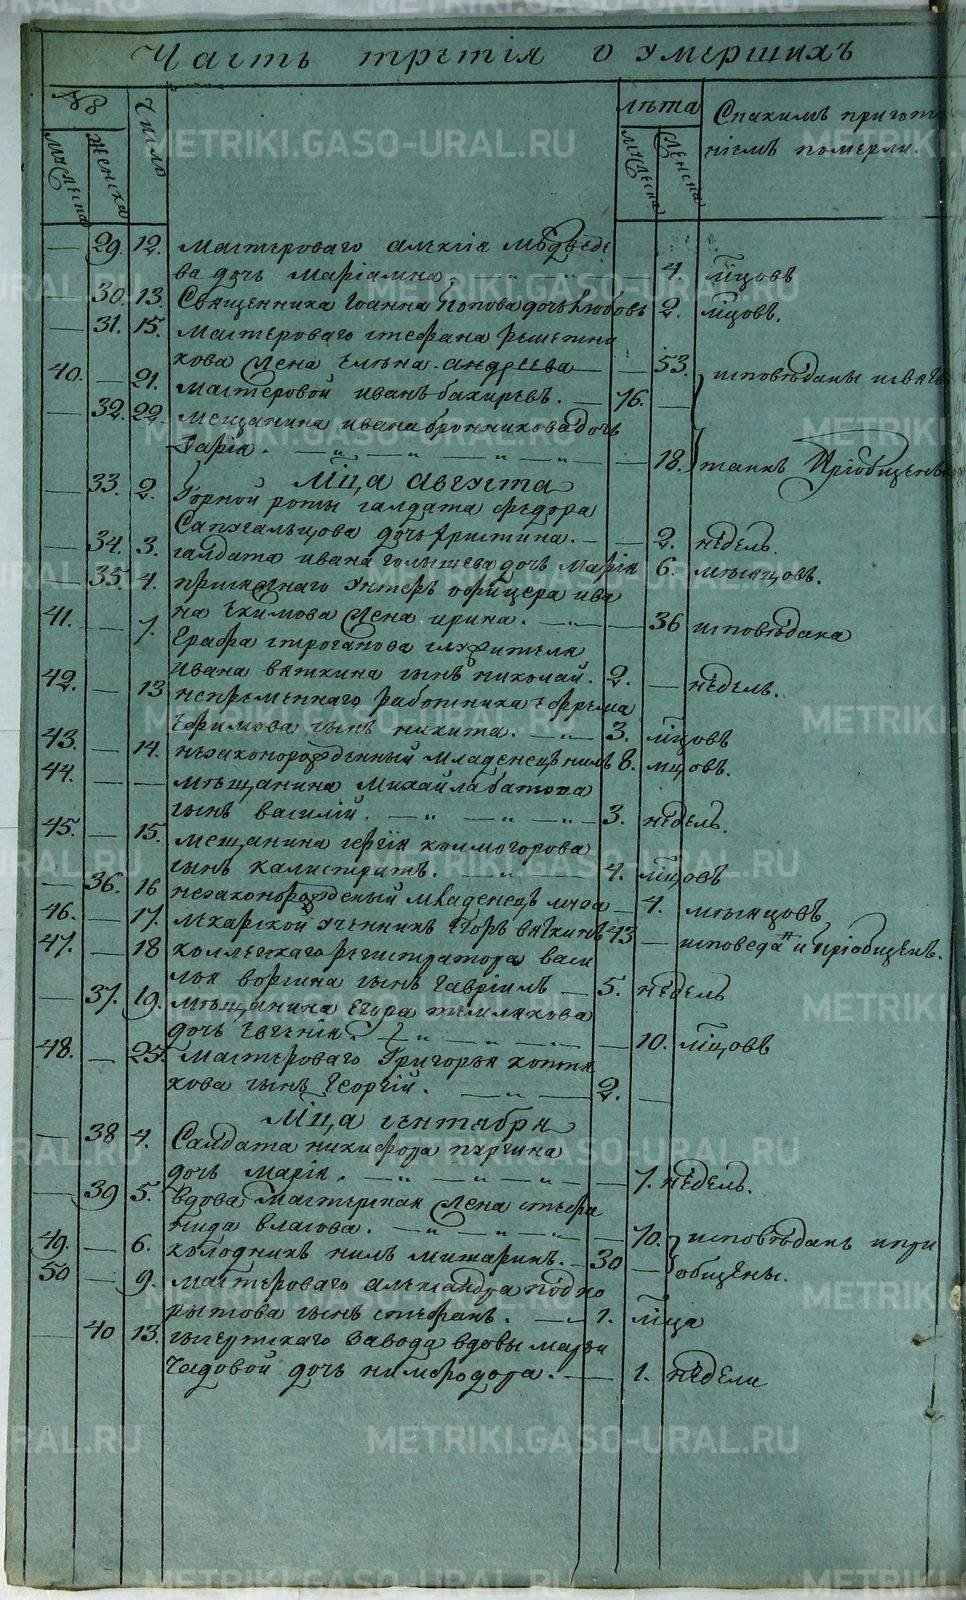 Часть третія о умершихъ
№ Число лѣта Спакимъ пригот
мужеска женска мужеска женска ніемъ померли.
— 29. 12. Мастероваго Алексіа Мѣдвѣде
ва дочь Маріамна — 4. м͠цовъ
— 30. 13. Священника Іоанна Попова дочь Любовь 2. м͠цовъ.
— 31. 15. Мастероваго Стефана Решетни
кова жена Елена Андреева — 53.
40. — 21. Мастеровой Иванъ Бахиревъ. — 76. — исповѣданы и
— 32. 22. Мещанина Ивана Бронникова дочь
Дарія. — 18. такъ пріобщены
М͠ца Августа
— 33. 2. Горной роты салдата Федора
дочь Христина. — 2. недель.
— 34. 3. салдата Ивана Голышева дочь Марія 6. мѣсяцовъ.
— 35. 4. Унтеръ Офицера Ива
на Екимова жена Ирина. — 36 исповѣдана
41. — 7. Графа Строганова служителя
Ивана Вяткина сынъ Николай. 2. — недель.
42. — 13 непременнаго работника Ефрема
Ефимова сынъ Никита. — 3. м͠цовъ
43. — 14. незаконорожденный младенецъ Нилъ 8. м͠цовъ.
44. — — Мѣщанина Михайла
сынъ Василій. — 3. недель.
45. — 15. Мещанина Сергія Колмогорова
сынъ Калистратъ. 4. м͠цовъ
— 36. 16 незаконорожденый младенецъ — 4. мѣсяцовъ
46. — 17. Лекарской ученикъ Егоръ Вяткинъ 43 — исповеда и пріобщенъ.
47. — 18 коллежскаго регистратора Васи
лья сынъ Гавріилъ — 5. недель
— 37. 19. Мѣщанина Егора Темлякова
дочь Евгенія. — 10. м͠цовъ
48. — 25. Мастероваго Григорья Коптя
кова сынъ Георгій. — 2. —
М͠ца Сентября
— 38 4. Салдата Никифора
дочь Марія. — 7. недель.
— 39 5. вдова Мастерская жена Стефа
нида Власова. — 70. исповѣданъ и при
49. — 6. колодникъ Нилъ Митаринъ. 30 — общены.
50 — 9. Мастероваго Александра Подко
рытова сынъ Стефанъ. — 1. м͠ца
— 40 13. Сысертскаго завода вдовы Марьи
Чадовой дочь Нимфодора. — 1. недели
METRIKI.GASO-URAL.RU